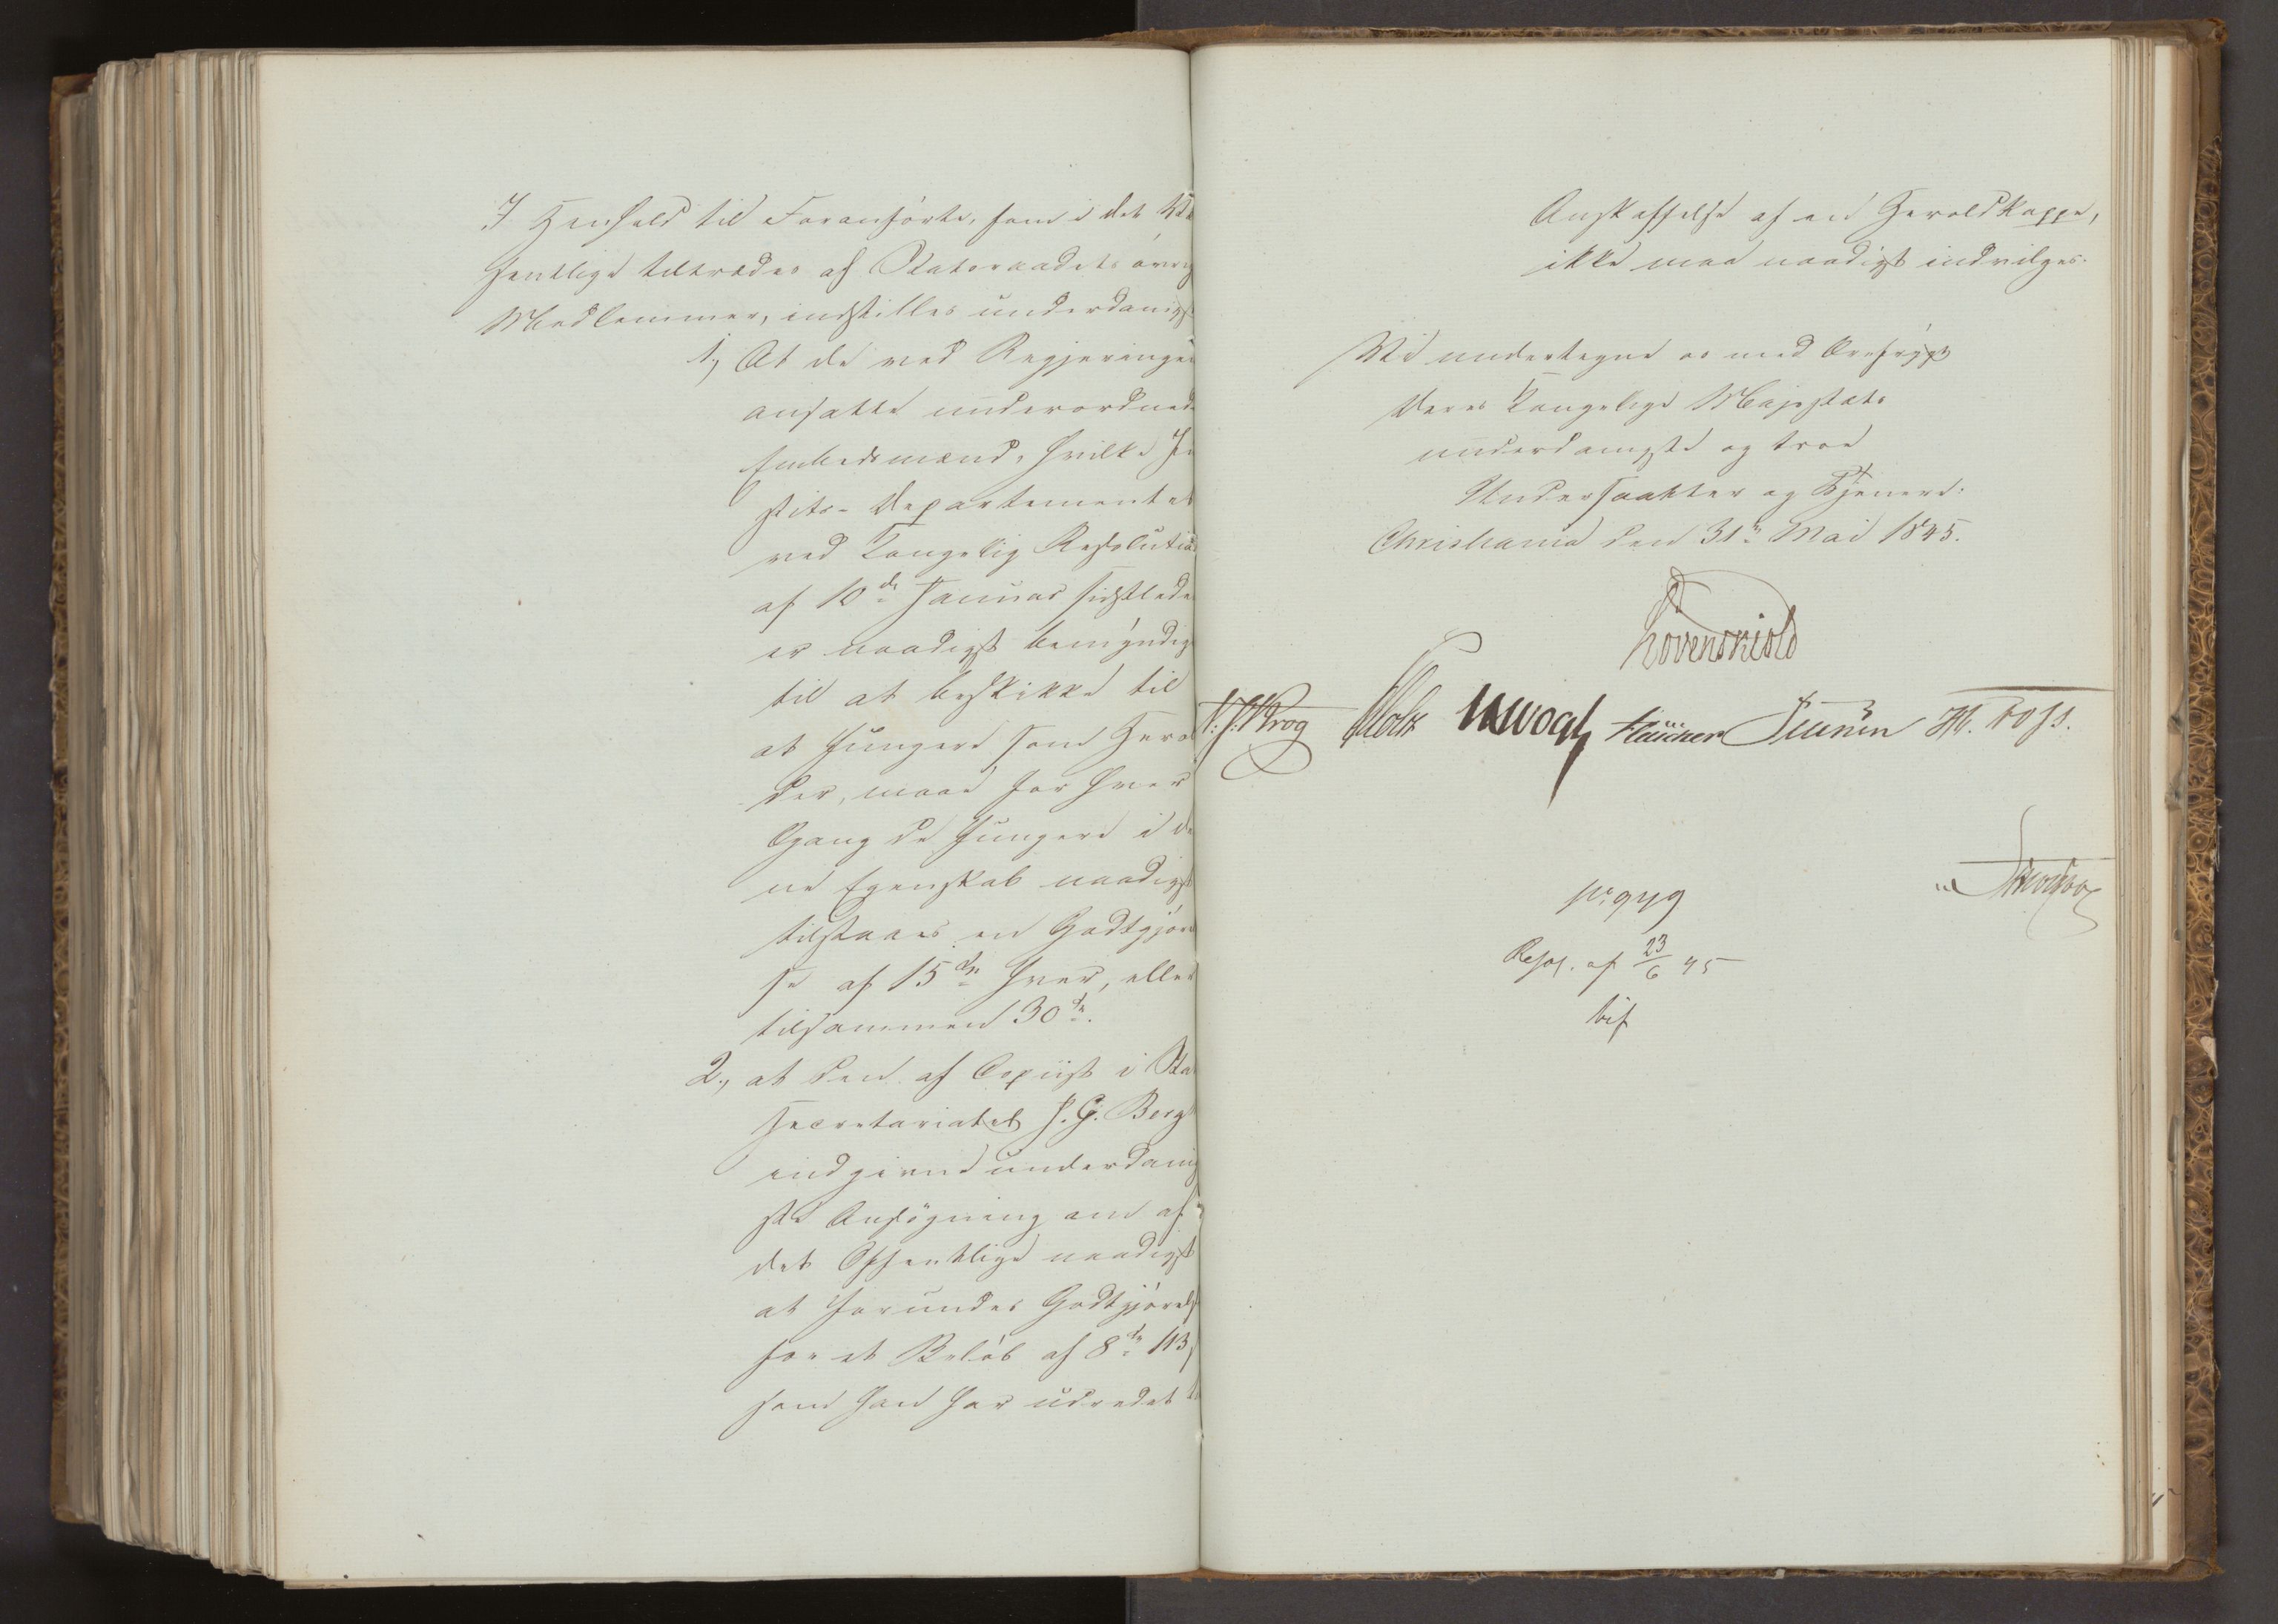 I Henhold til Foranførte, som i det Væ
sentlige tiltrædes af Statsraadets øvrig
Medlemmer, indstilles underdanigst
1, At de ved Regjeringen
ansatte underordnede
Embedsmænd, hvilke Ju
stits-Departementet
ved Kongelig Resolution
af 10de Januar sidstleden
er naadigst bemyndig
til at beskikke til
at fungere som Herol
der, maae for hver
Gang de fungere i den
ne Egenskab naadigst
tilstaaes en Godtgjørel
se af 15 Spd hver, eller
tilsammen 30 Spd.
2, at den af Copiist i Stats
secretariatet J. G. Berg
indgivne underdanig
ste Ansøgning om af
det Offentlige naadigst
at forundes Godtgjørelse
for et Beløb af 8 Spd 113 s
som han har udredet t
Anskaffelse af en Heroldkappe,
ikke maa naadigst indvilges.
Vi undertegne os med Ærefrygt
Deres Kongelige Majestæts
underdanigste og troe
Undersaatter og Tjenere.
Christiania den 31te Mai 1845.
Løvenskiold
Krog Holst Vogt Fleischer Petersen H. Foss.
No. 949
Resol. af 23/6 45
bif